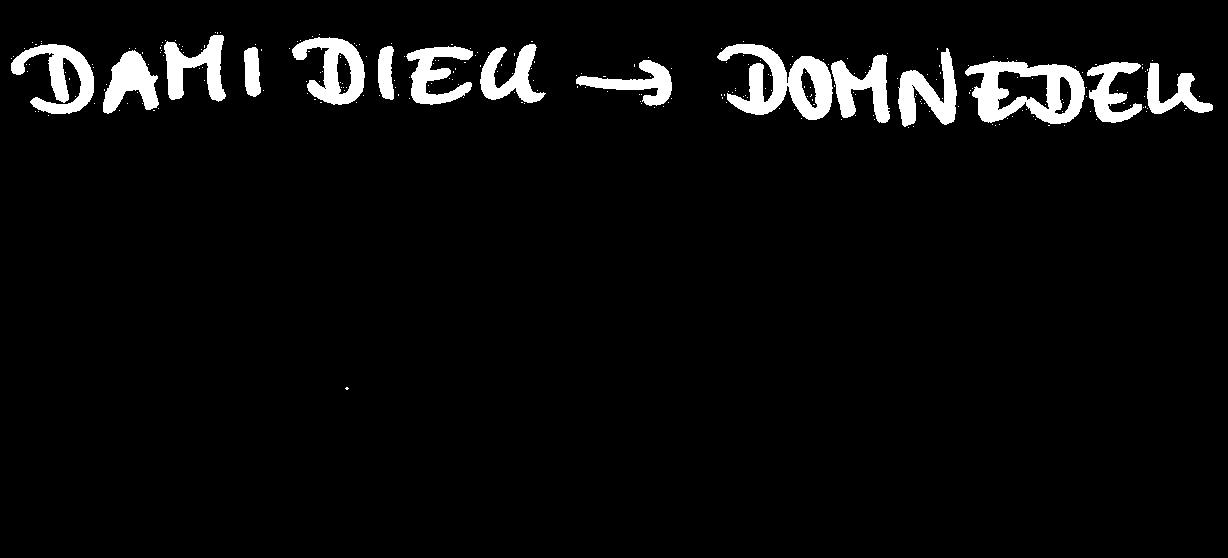 DAMI DIEU → DOMNEDEU